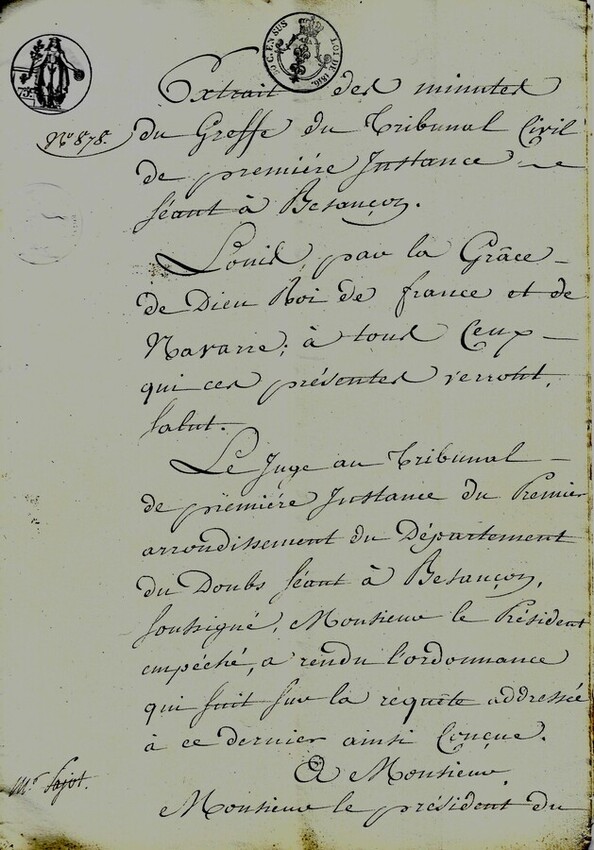 75.c
C. EN SUS
LOI DE 1816.
Extrait des minutes
N.o 878.
du Greffe du Tribunal Civil
de première Instance
séant à Besançon.
Louis, par la Grâce
de Dieu Roi de france et de
Navarre; à tous Ceux
qui ces présentes verront,
salut.
Le Juge au Tribunal
de première Instance du Premier
arrondissement du Département
du Doubs séant à Besançon,
soussigné, Monsieur le Président
empêché, a rendu l'ordonnance
qui suit sur la requête addressée
à ce dernier ainsi Conçue.
A Monsieur
Mr Sajot.
Monsieur le président du